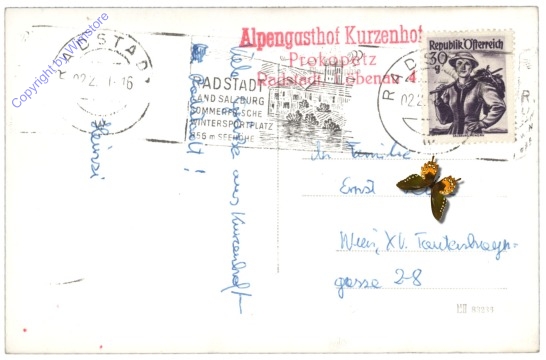 Copyright by Winkstore
Alpengasthof Kurzenhof
Prokopetz
Radstadt-Löbenau 4
RADSTADT
02.2
-16
RADSTADT
LAND SALZBURG
SOMMERFRISCHE
WINTERSPORTPLATZ
856 m SEEHÖHE
Republik Österreich
30
g
Viele Grüße aus Kurzenhof
Radstadt!
Heinzi
An Familie
Ernst
Wien, XV.
gasse 2-8